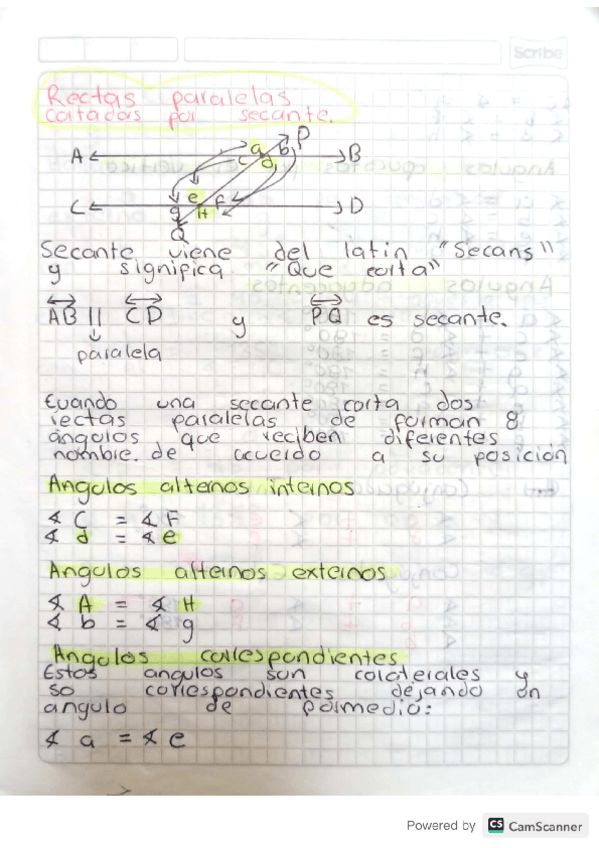 Scribe
Rectas paralelas
cortadas por secante.
P
A a b B
c d
e F
C D
g H
Q
Secante viene del latin "Secans"
y significa "Que corta"
AB || CD y PQ es secante.
paralela
Cuando una secante corta dos
rectas paralelas de forman 8
ángulos que reciben diferentes
nombre. de acuerdo a su posición
Angulos alternos internos
∢ C = ∢ F
∢ d = ∢ e
Angulos alternos externos
∢ A = ∢ H
∢ b = ∢ g
Angulos correspondientes
Estos angulos son colaterales y
so correspondientes dejando un
angulo de pormedio:
∢ a = ∢ e
Powered by CS CamScanner